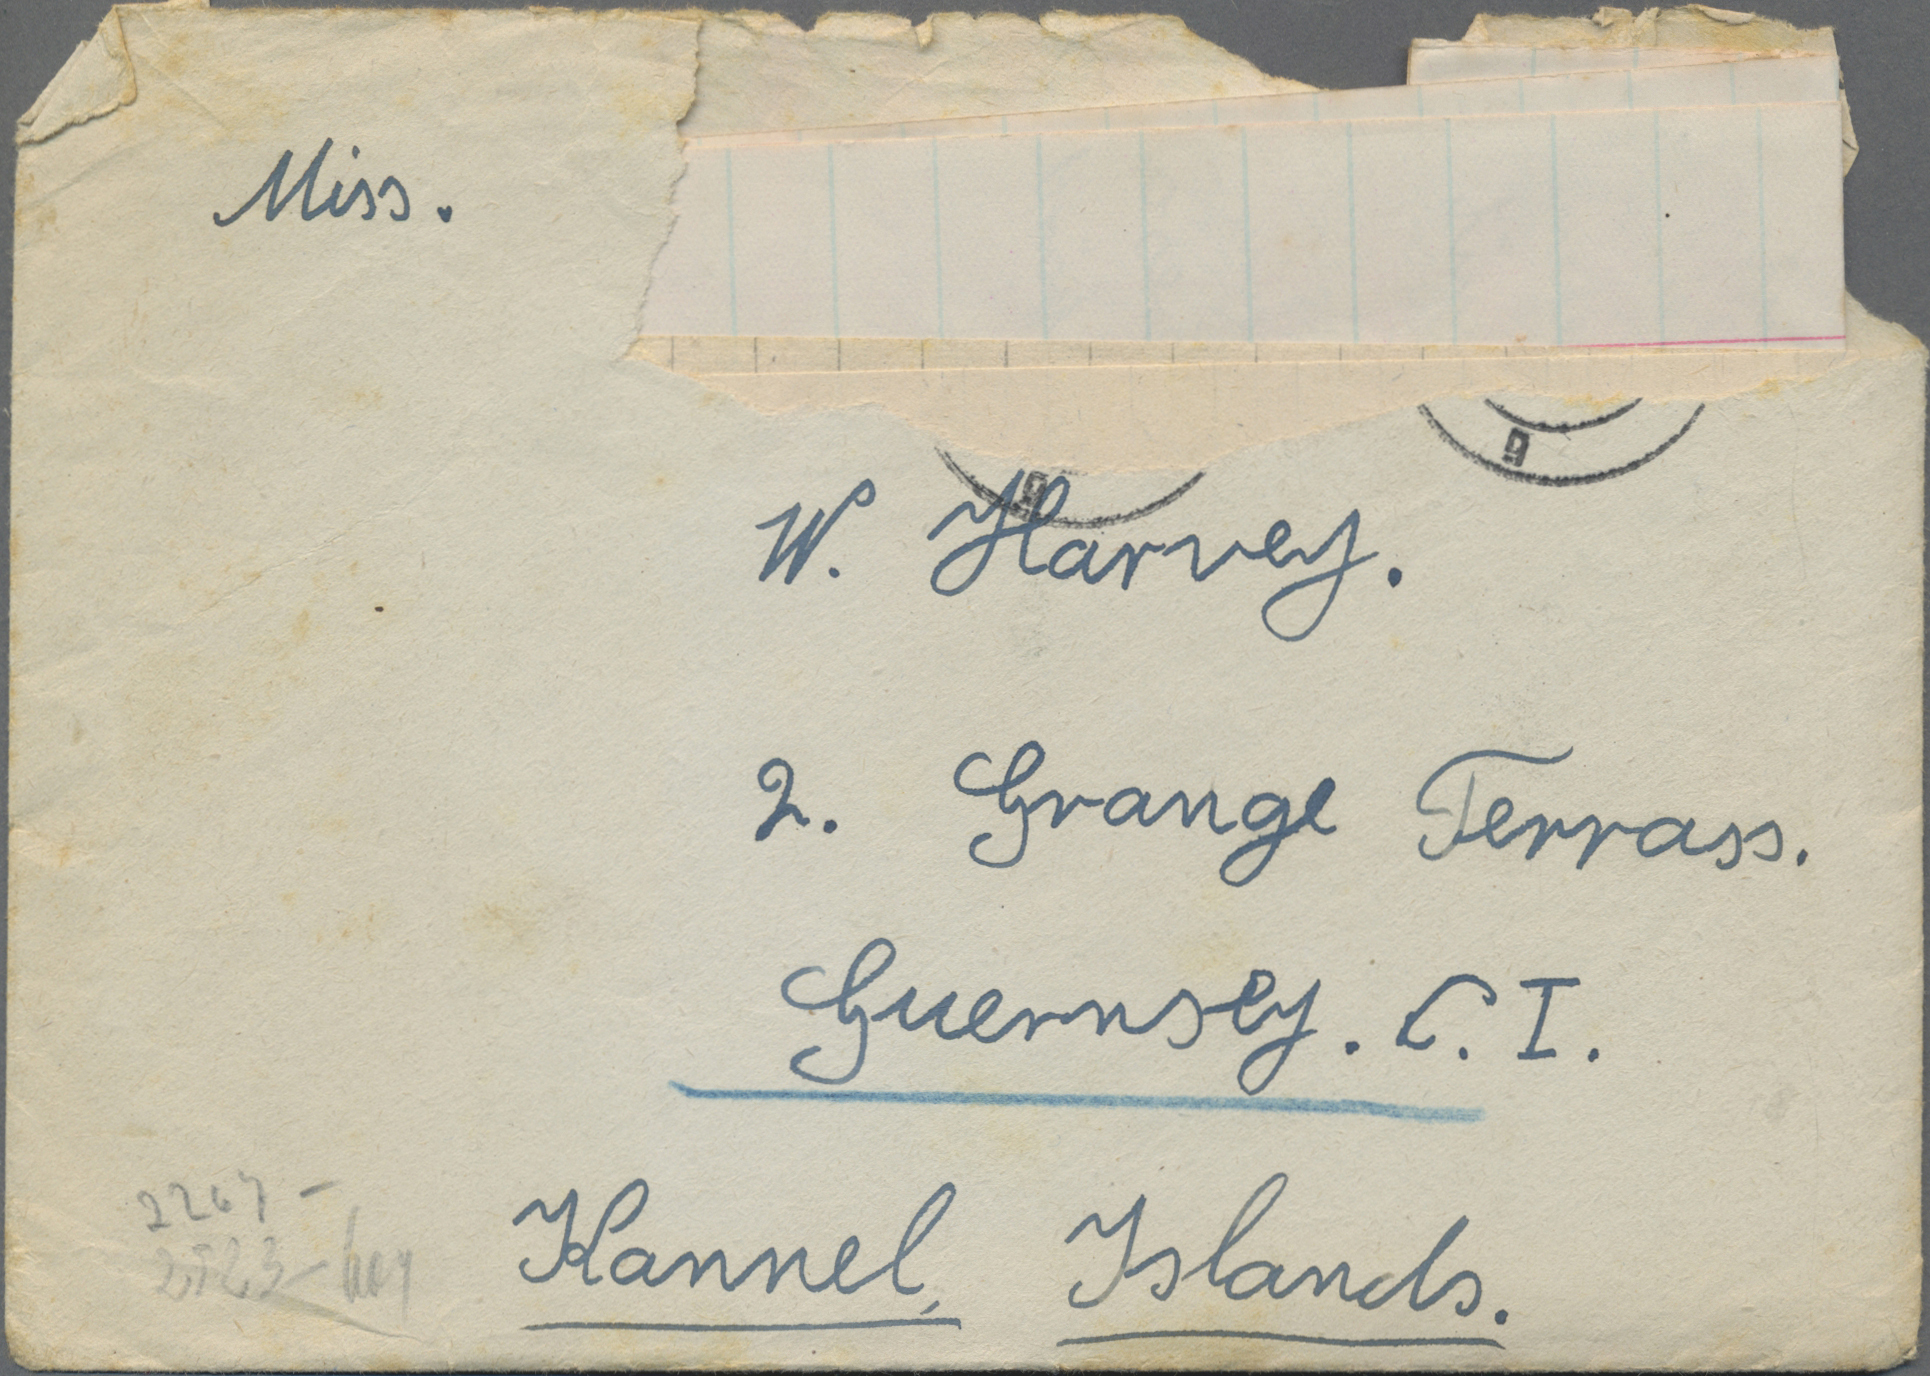 Miss.
W. Harvey.
2. Grange Terrass.
Guernsey. C. I.
Kannel Islands.
2267 -
g
g